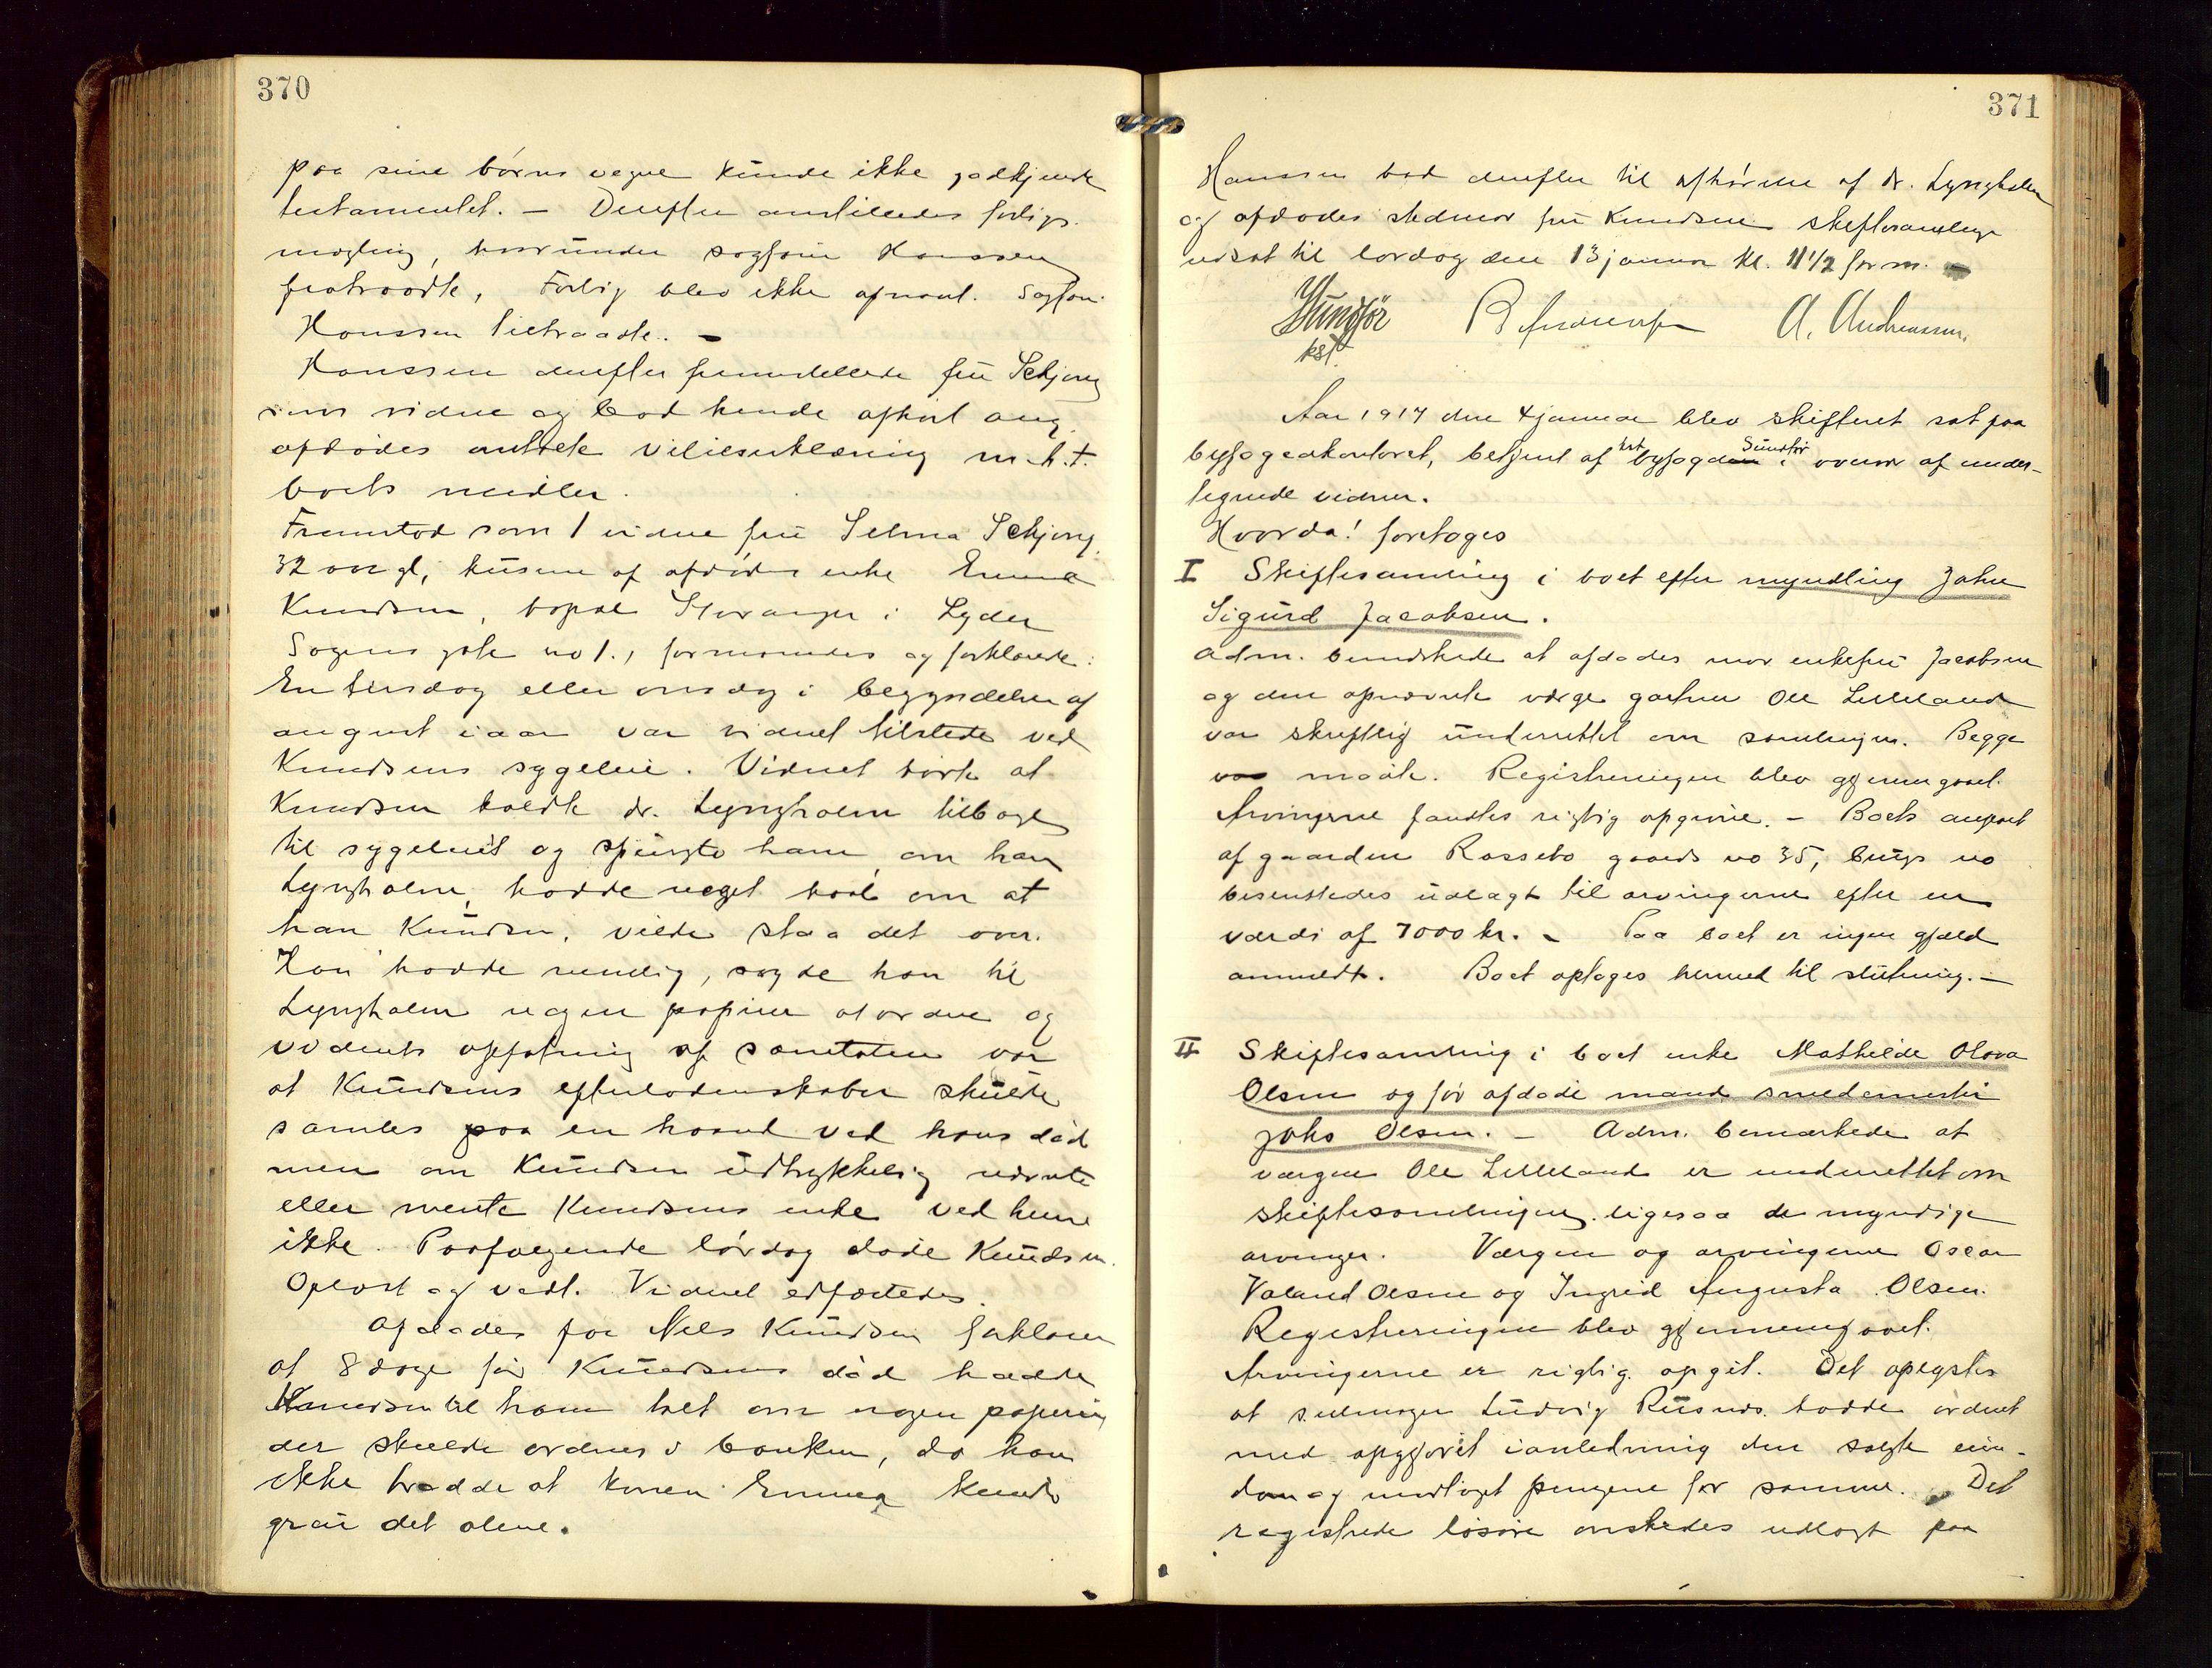 370
paa sine børns vegne kunde ikke godkjende
testamentet. – Derefter anstilledes forligs-
mægling, hvorunder sagfører Hanssen
fratraadte, Forlig blev ikke opnaat. Sagfør.
Hanssen tiltraadte. –
Hanssen derefter fremstillede fru Schjong
som vidne og bad hende afhørt ang.
afdødes antatte vilieserklæring m.h.t.
boets midler.
Fremstod som 1 vidne fru Selma Schjong,
32 aar gl, kusine af afdødes enke Emma
Knudsen, bopæl Stavanger i Lyder
Sagens gate no 1., formanedes og forklarede:
En tirsdag eller onsdag i begyndelsen af
august iaar var vidnet tilstede ved
Knudsens sygeleie. Vidnet hørte at
Knudsen kaldte dr. Lyngholm tilbage
til sygeleiet og spurgte ham om han
Lyngholm, hadde noget haab om at
han Knudsen, vilde staa det over.
Han hadde nemlig, sagde han til
Lyngholm nogen papirer at ordne og
vidnets opfatning af samtalen var
at Knudsens efterladenskaber skulde
samles paa en haand ved hans død
men om Knudsen udtrykkelig nævnte
eller mente Knudsens enke ved hun
ikke. Paafølgende lørdag døde Knudsen.
Oplæst og vedt. Vidnet edfæstedes.
Afdødes far Nils Knudsen forklarer
at 8 dage før Knudsens død hadde
Knudsen til ham talt om nogen papirer
der skulde ordnes i banken, da han
ikke trodde at konen Emma kunde
greie det alene.
371
Hanssen bad derefter til afhørelse af dr. Lyngholm
og afdødes stedmor fru Knudsen skiftesamlingen
udsat til lørdag den 13 januar kl. 11 1/2 form. –
Sundför A. Andreassen.
kst
Aar 1917 den 4 januar blev skifteret sat paa
byfogedkontoret, betjent af kst byfoged Sundför i overvær af under-
tegnede vidner.
Hvorda! foretages
I Skiftesamling i boet efter myndling John
Sigurd Jacobsen.
Adm. bemerkede at afdødes mor enkefru Jacobsen
og den opnævnte værge gartner Ole Lilleland
var skriftlig underrettet om samlingen. Begge
var mødt. Registreringen blev gjennemgaaet.
Arvingerne fandtes rigtig opgivne. – Boets anpart
af gaarden Rossebø gaards no 35, brugs no
besluttedes udlagt til arvingerne efter en
værdi af 7000 kr. – Paa boet er ingen gjæld
anmeldt. Boet optages hermed til slutning. –
II Skiftesamling i boet enke Mathilde Olava
Olsen og før afdøde mand smedemester
Johs Olsen. – Adm. bemærkede at
værgen Ole Lilleland er underrettet om
skiftesamlingen, ligesaa de myndige
arvinger. Værgen og arvingerne Oscar
Valand Olsen og Ingrid Augusta Olsen.
Registreringen blev gjennemgaaet.
Arvingerne er rigtig opgit. Det oplystes
at Ludvig hadde ordnet
med opgjøret ianledning den solgte eien-
dom og modtaget pengene for samme. Det
registrede løsøre ønskedes udlagt paa